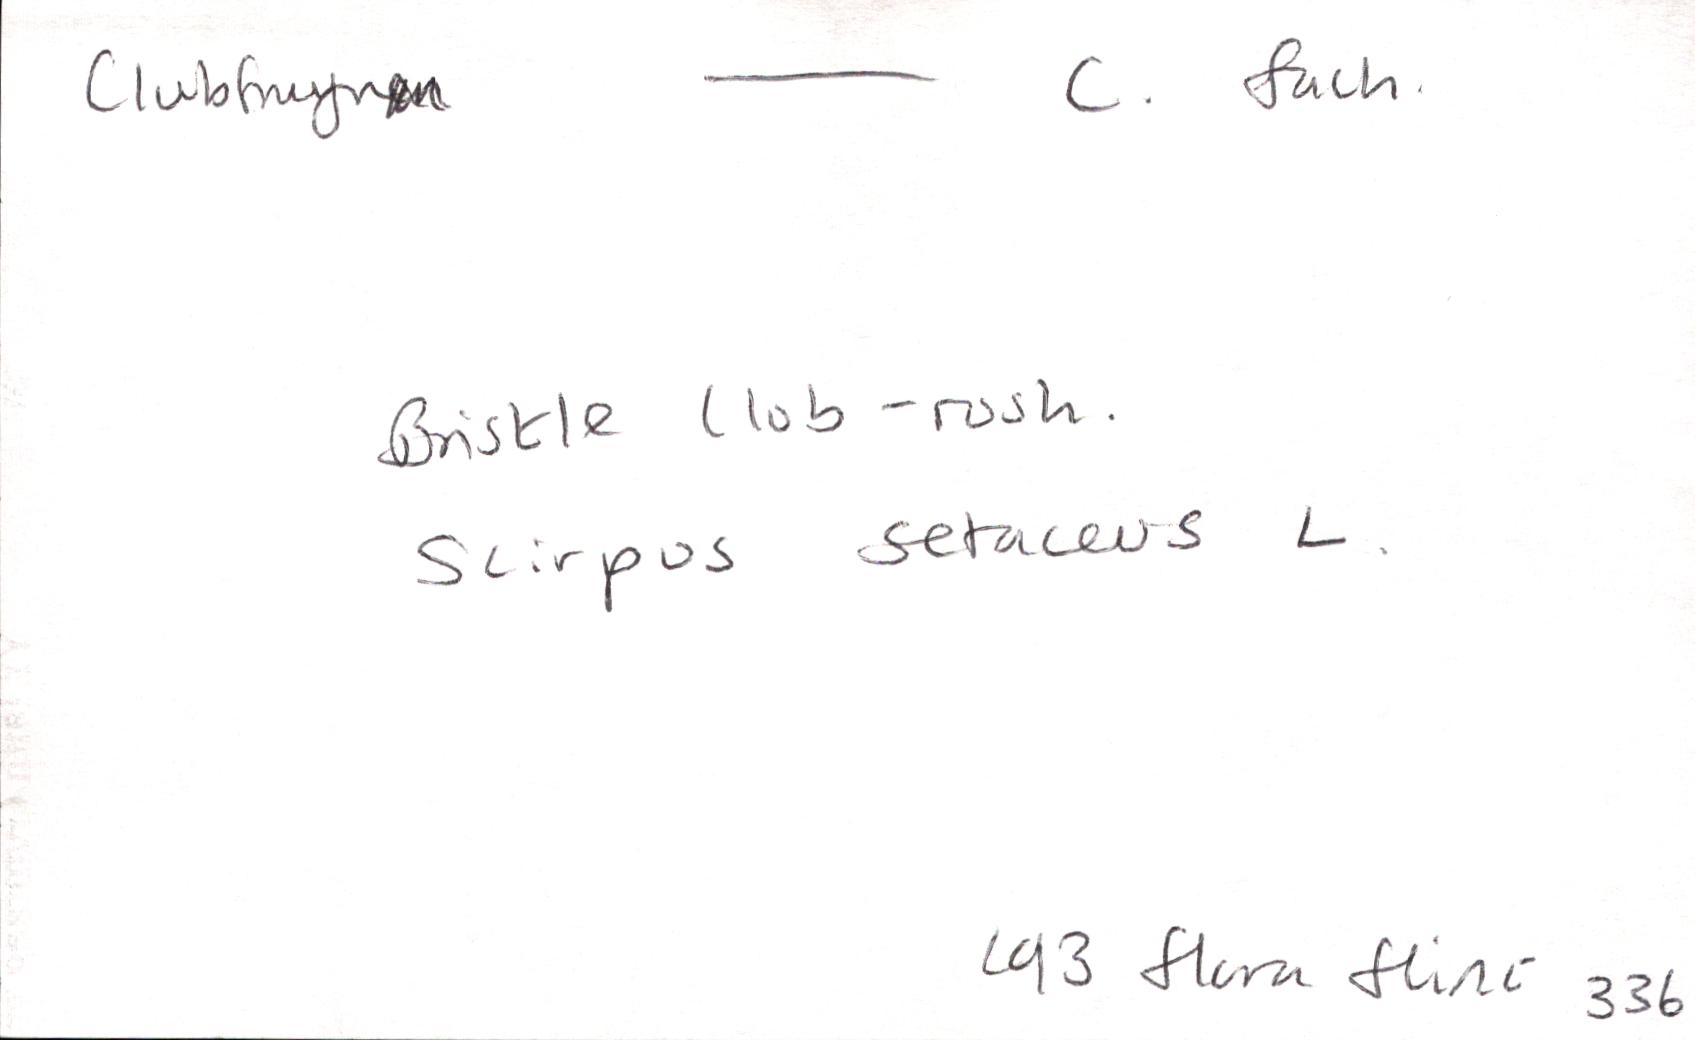 Clubfrwynen — C. fach.
Bristle Club-rush.
Scirpus setaceus L.
L93 flora flint 336